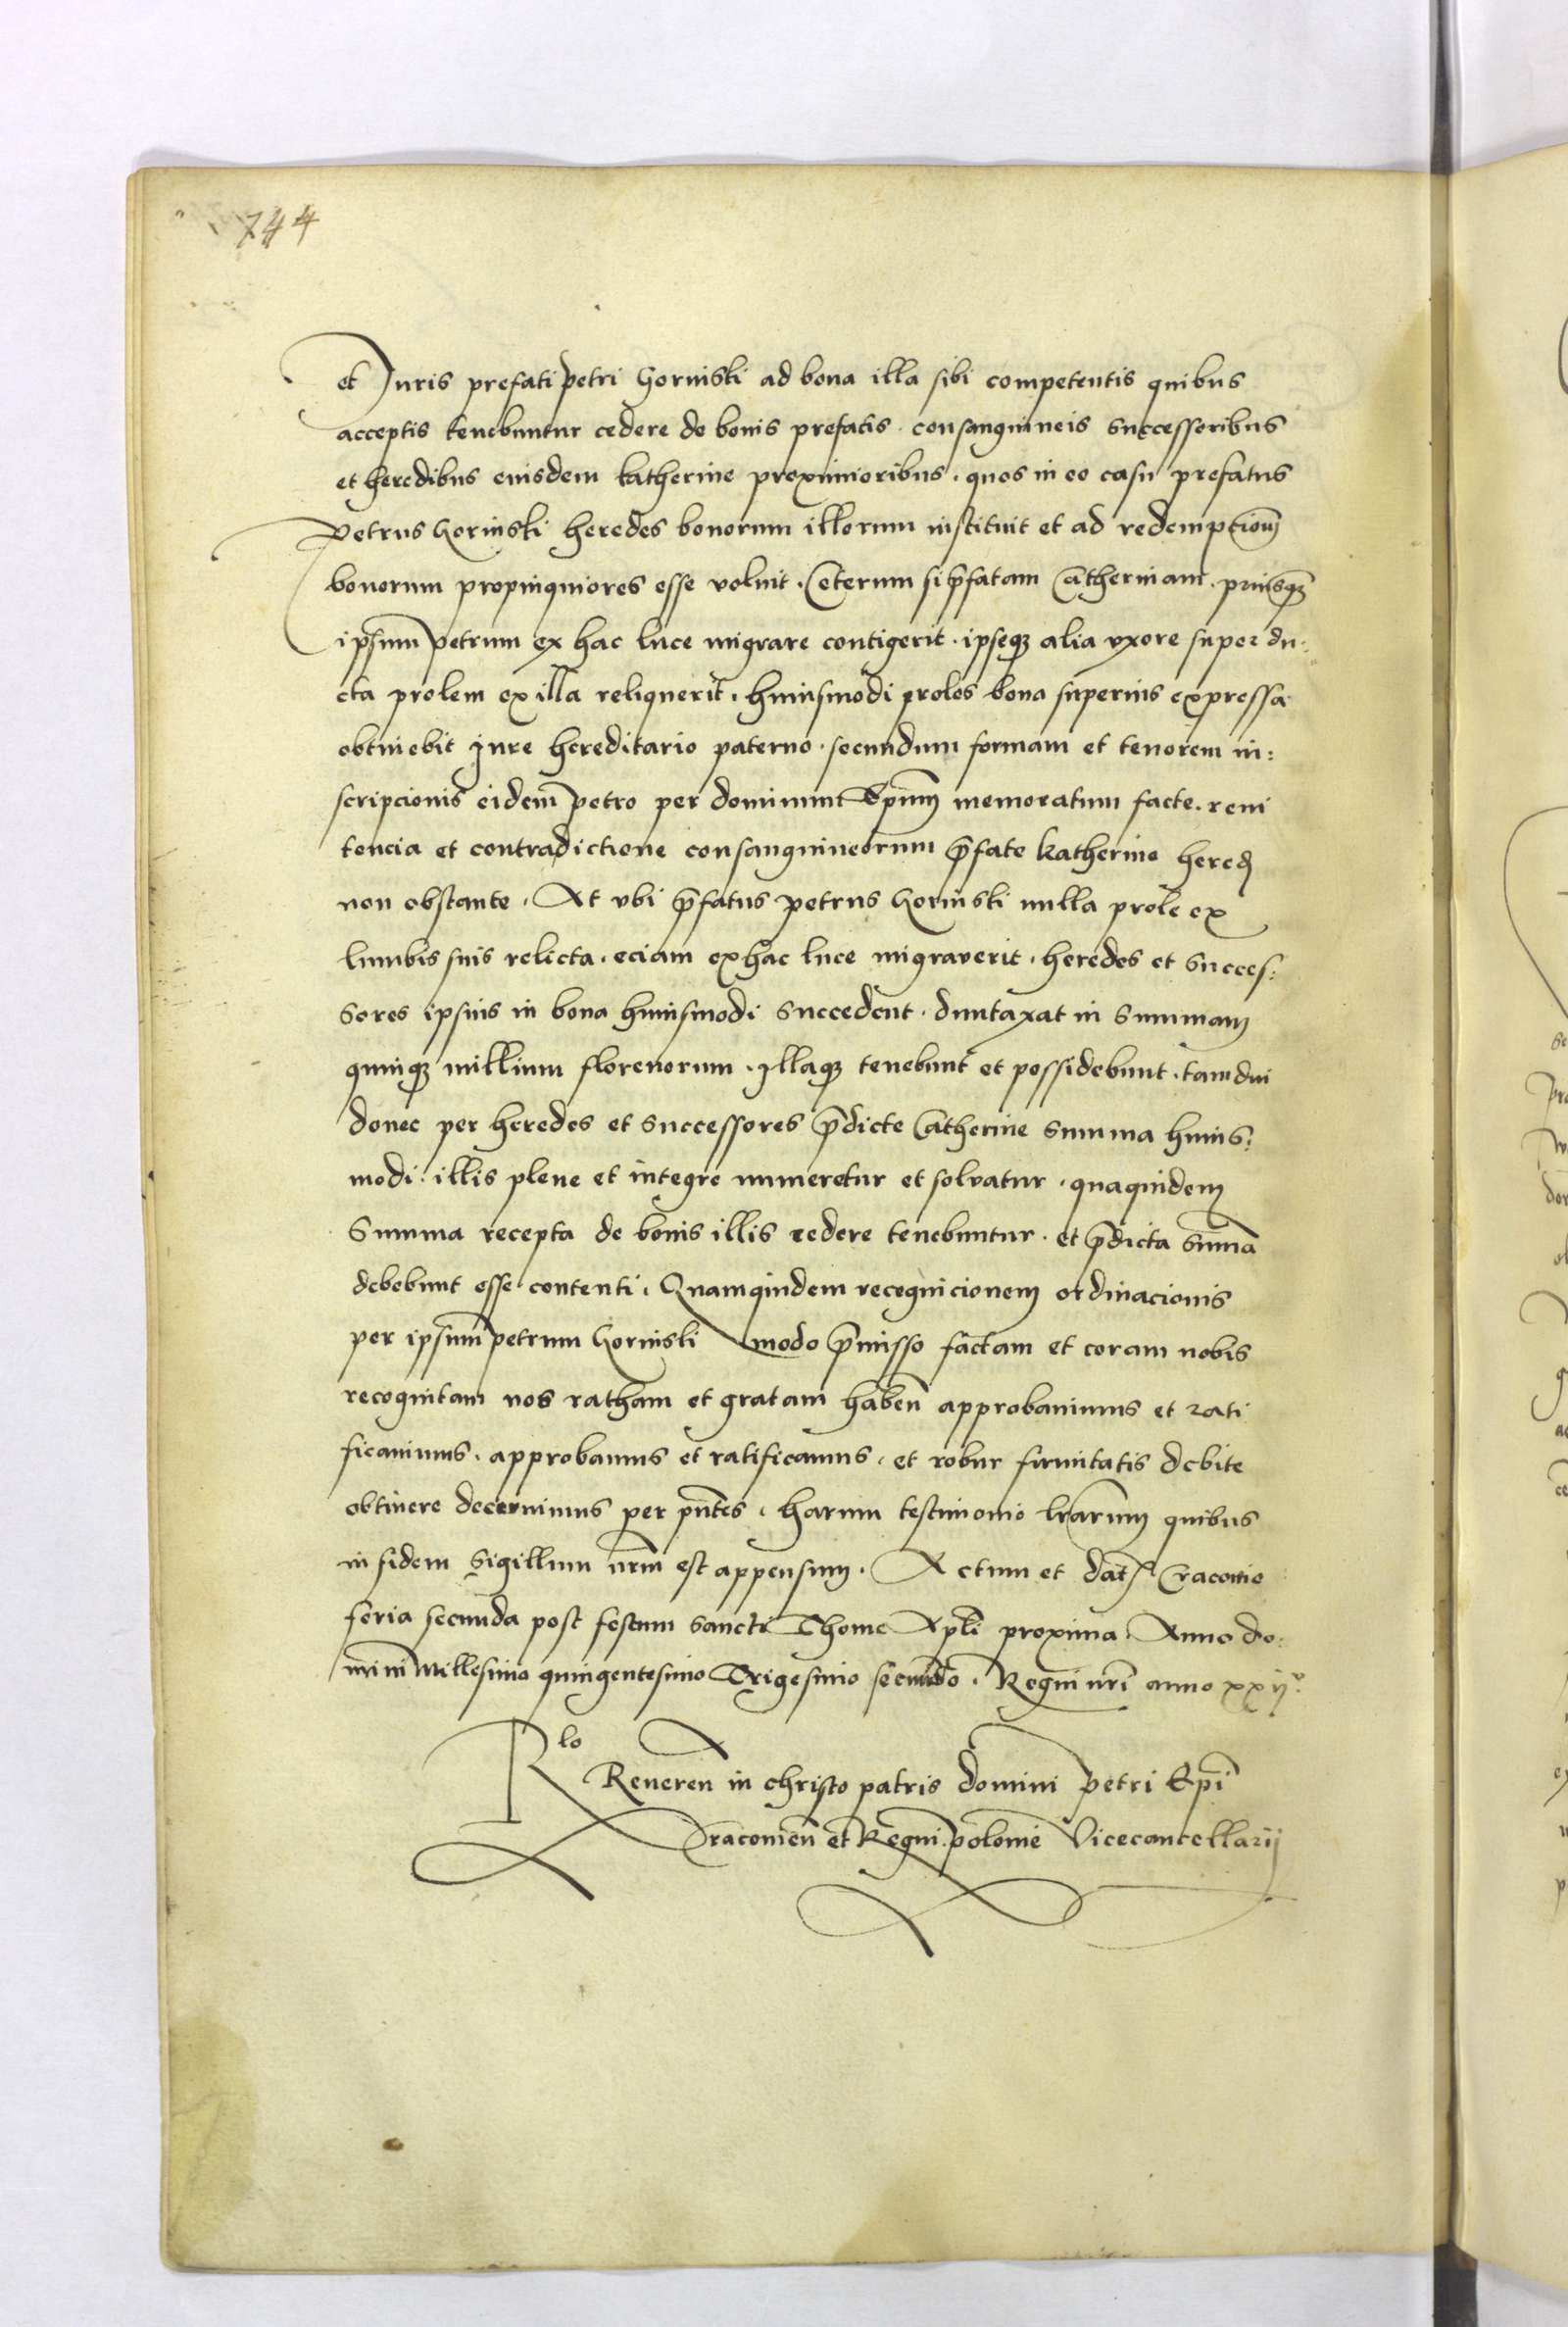 744
et Juris prefati petri Gorinski ad bona illa sibi competentis quibus
acceptis tenebuntur cedere de bonis prefatis. consanguineis successoribus
et heredibus eiusdem katherine proximioribus. quos in eo casu prefatus
Petrus Gorinski heredes bonorum illorum instituit et ad redemptionē
bonorum propinquiores esse voluit. Ceterum si p̄fatam Catherinam. priusq̄
ipsum petrum ex hac luce migrare contigerit. ipseq; alia vxore super du:
cta prolem ex illa reliquerit. huiusmodi proles bona superius expressa
obtinebit Jure hereditario paterno. secundum formam et tenorem in:
scripcionis eidem petro per dominum Ep̄um memoratum facte. reni
tencia et contradictione consanguineorum p̄fate katherine hered
non obstante. At vbi p̄fatus petrus Gorinski nulla prole ex
lumbis suis relicta. eciam ex hac luce migraverit. heredes et succes:
sores ipsius in bona huiusmodi succedent. duntaxat in summam
quinq; millium florenorum. Illaq; tenebunt et possidebunt. tamdiu
donec per heredes et successores p̄dicte Catherine summa huius:
modi illis plene et integre numeretur et solvatur. quaquidem
Summa recepta de bonis illis cedere tenebuntur. et p̄dicta sūma
debebunt esse contenti. Quamquidem recognicionem ordinacionis
per ipsum petrum Gorinski modo p̄misso factam et coram nobis
recognitam nos ratham et gratam haben̄ approbauimus et rati
ficauimus. approbamus et ratificamus. et robur firmitatis debite
obtinere decernimus per pn̄tes. harum testimonio lr̄arum quibus
in fidem Sigillum nr̄m est appensum. Actum et dat Cracouie
feria secunda post festum sancti Thome Apl̄i proxima. Anno do:
mini Millesimo quingentesimo Trigesimo secundo. Regni nr̄i anno xxij°.
Rlo
Reueren̄ in christo patris domini Petri Ep̄i
Cracouien̄ et Regni polonie Vicecancellarij